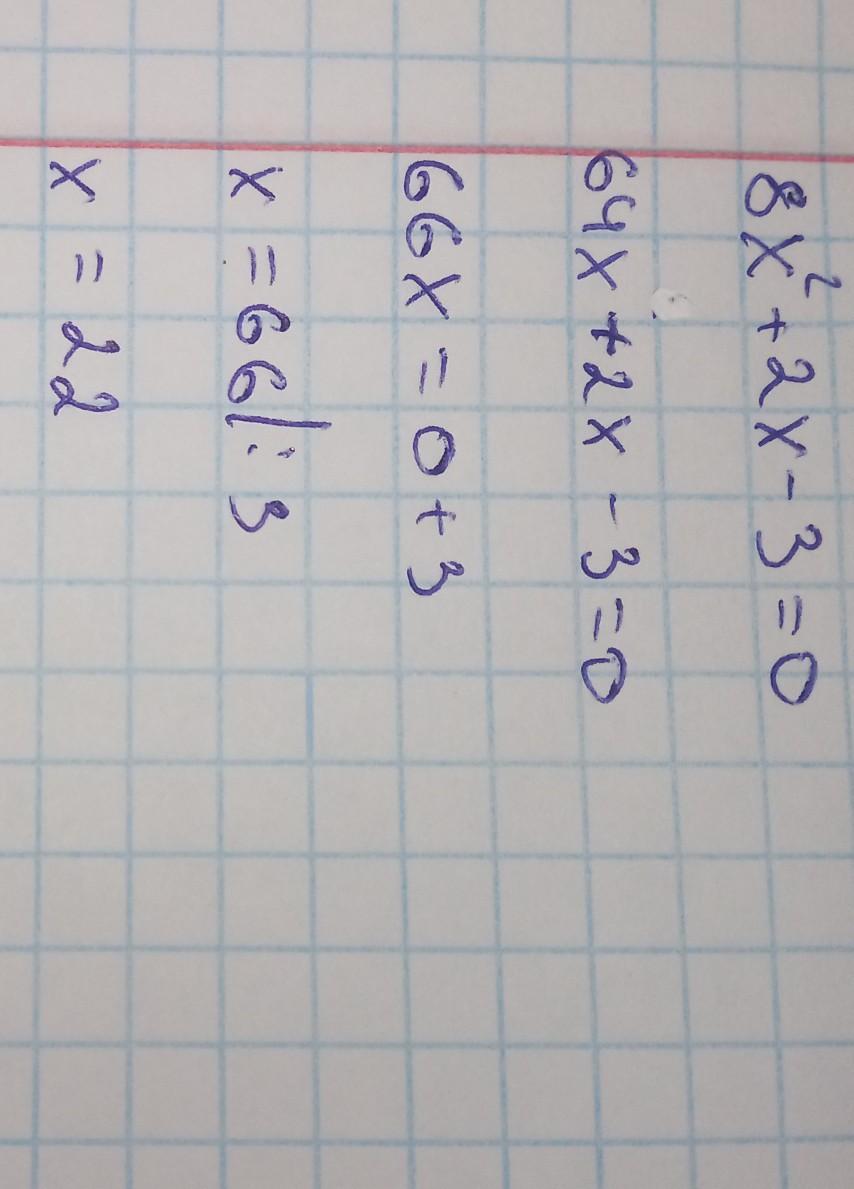 8x² + 2x - 3 = 0
64x + 2x - 3 = 0
66x = 0 + 3
x = 66 | : 3
x = 22